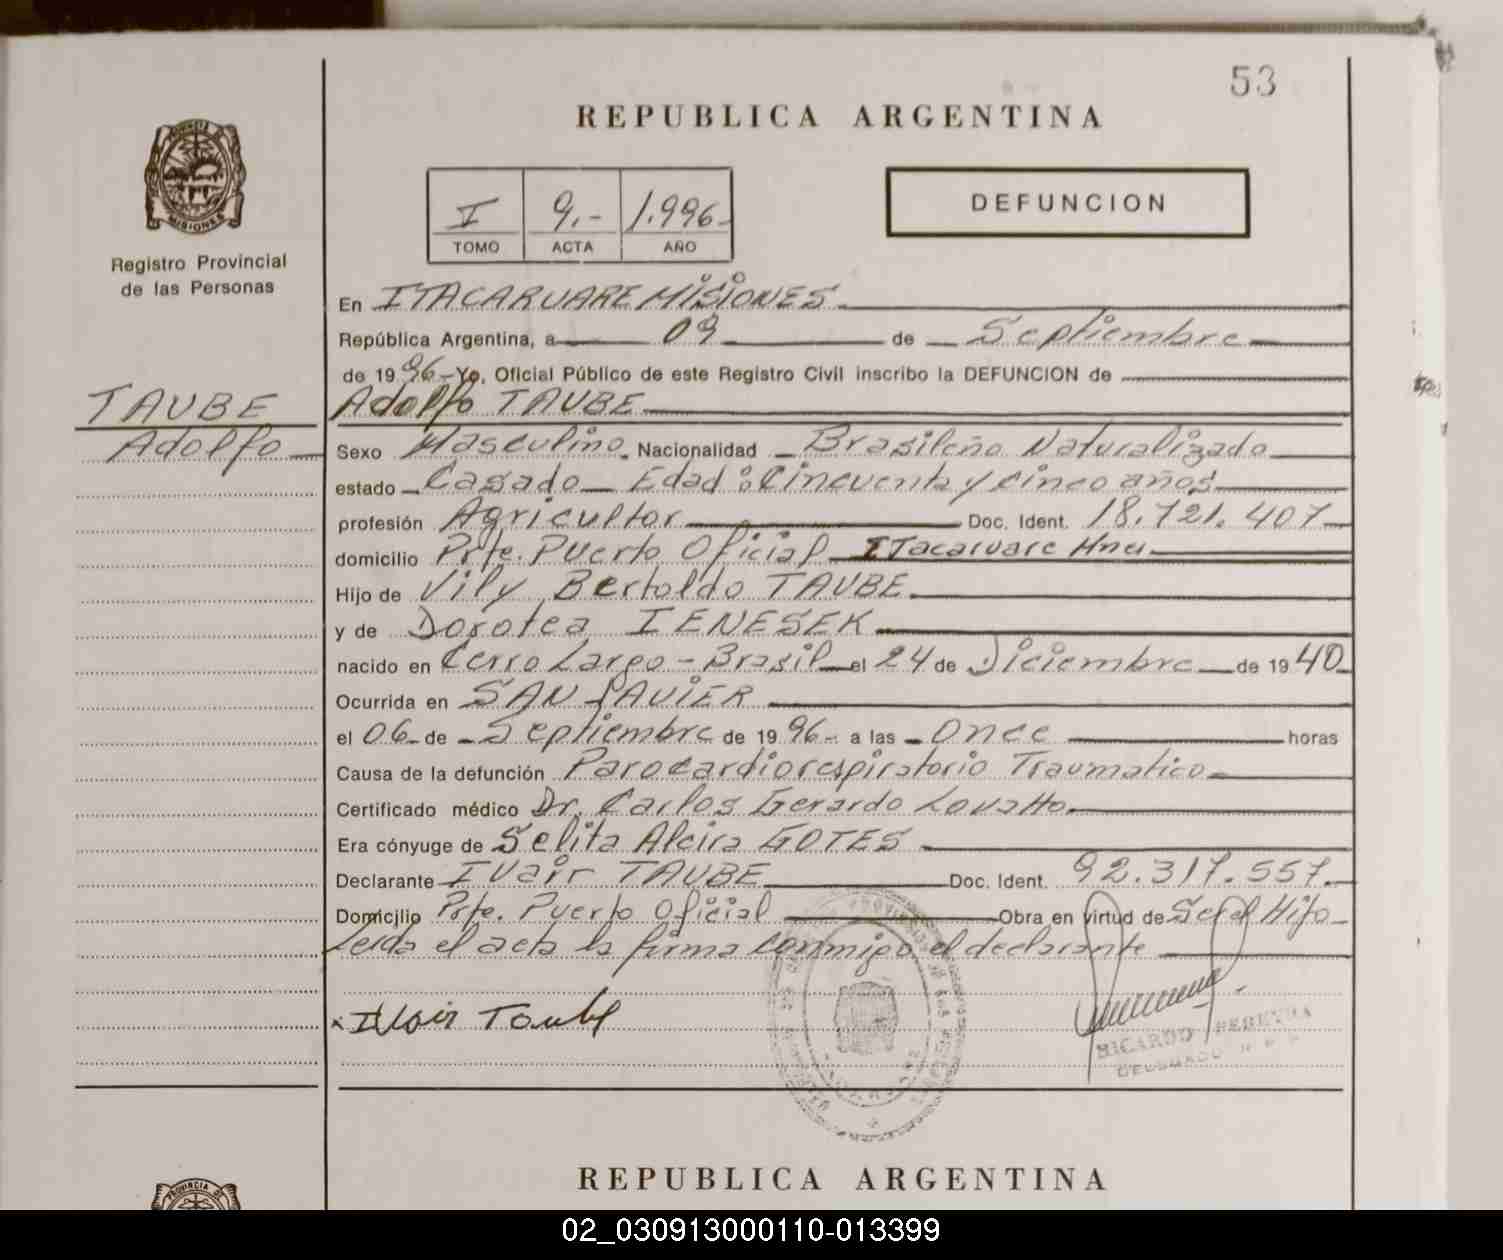 53
REPUBLICA ARGENTINA
I 9.- 1.996-
TOMO ACTA AÑO
DEFUNCION
MISIONES
Registro Provincial
de las Personas
En ITACARUARE MISIONES
República Argentina, a 09 de Septiembre
de 19 96- Yo, Oficial Público de este Registro Civil inscribo la DEFUNCION de
TAUBE
Adolfo
Adolfo TAUBE
Sexo Masculino Nacionalidad Brasileño Naturalizado
estado Casado Edad: Cincuenta y cinco años
profesión Agricultor Doc. Ident. 18.721.407
domicilio Prte. Puerto Oficial ITacaruare Mnes
Hijo de Vily Bertoldo TAUBE
y de Dorotea IENESEK
nacido en Cerro Largo - Brasil el 24 de Diciembre de 19 40
Ocurrida en SAN JAVIER
el 06 de Septiembre de 19 96- a las once horas
Causa de la defunción Parocardiorespiratorio Traumatico
Certificado médico Dr. Carlos Gerardo Lovatto
Era cónyuge de Selita Alcira GOTES
Declarante IVair TAUBE Doc. Ident. 92.317.557
Domicilio Prte. Puerto Oficial Obra en virtud de Ser el Hijo
Leida el acta la firma conmigo el declarante
x IVair Taube
RICARDO PEREYRA
DELEGADO
REPUBLICA ARGENTINA
PROVINCIA DE
02_030913000110-013399